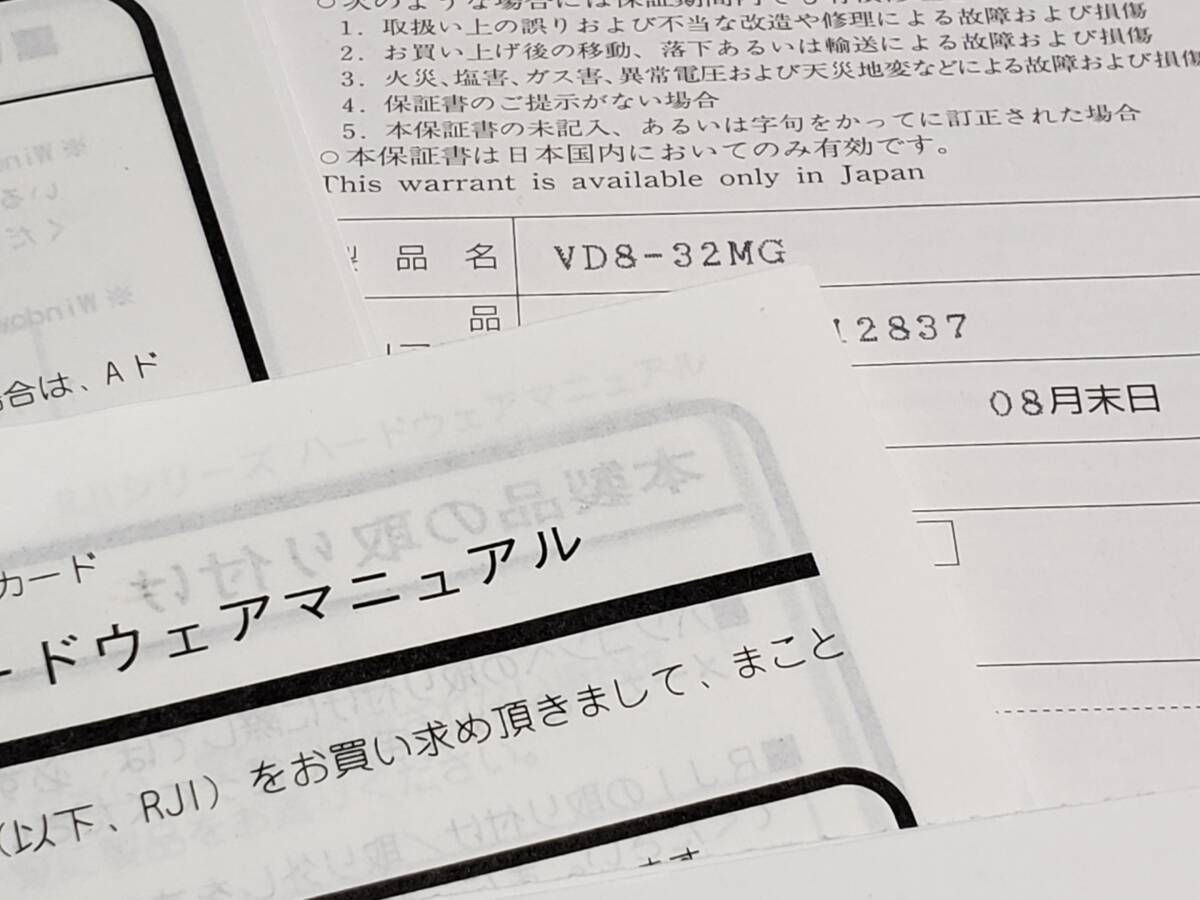 ○次のような場合には保証期間内でも有償修
1. 取扱い上の誤りおよび不当な改造や修理による故障および損傷
2. お買い上げ後の移動、落下あるいは輸送による故障および損傷
3. 火災、塩害、ガス害、異常電圧および天災地変などによる故障および損傷
4. 保証書のご提示がない場合
5. 本保証書の未記入、あるいは字句をかってに訂正された場合
○本保証書は日本国内においてのみ有効です。
This warrant is available only in Japan
製品名 VD8-32MG
品 12837
08月末日
場合は、Aド
カード
ードウェアマニュアル
(以下、RJI)をお買い求め頂きまして、まこと